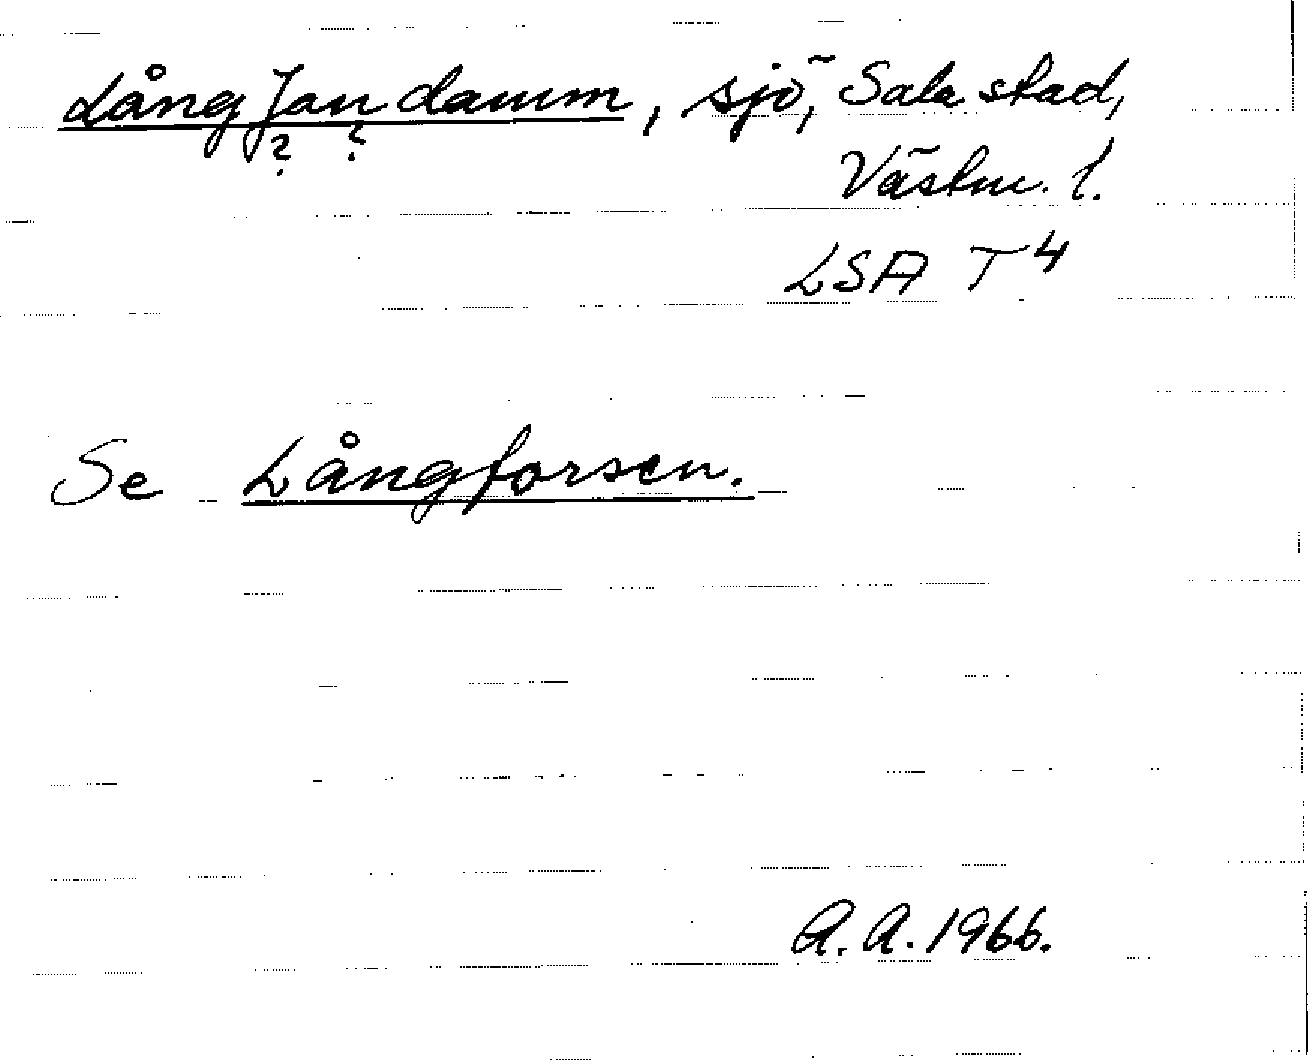 Lång Jan damm, sjö, Sala stad,
? ?
Västm. l.
LSA T 4
Se Långforsen.
A. A. 1966.